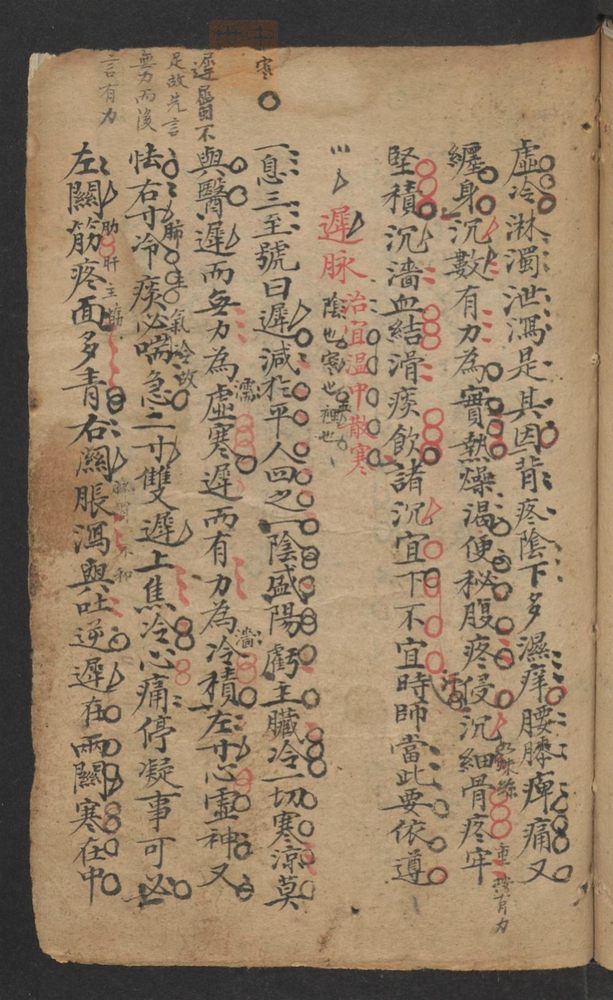 虛冷淋濁泄瀉是其因背疼陰下多濕痒腰膝痺痛又
纏身沉數有力為實熱燥渴便秘腹疼侵沉細骨疼牢
蛛絲
重按有力
堅積沉濇血結滑痰飲諸沉宜下不宜時師當此要依遵
遲脉
治宜溫中散寒
陰也寒也裡也
寒
一息三至號曰遲減於平人四之一陰盛陽虧主臟冷一切寒涼莫
與醫遲而無力為虛寒遲而有力為冷積左寸心虛神又
濡
濇
遲屬不
足故先言
無力而後
言有力
怯右寸冷痰必喘急二寸雙遲上焦冷心痛停凝事可必
肺主氣冷故
左關筋疼面多青右關脹瀉與吐逆遲在兩關寒在中
肝主筋
不和